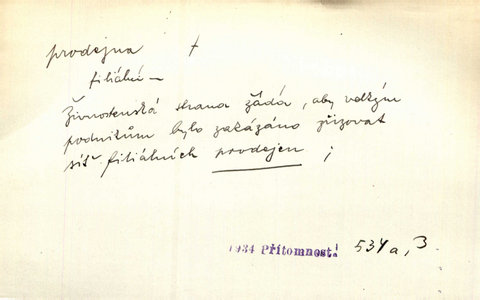 prodejna +
filiální —
Živnostenská strana žádá, aby velkým
podnikům bylo zakázáno zřizovat
síť filiálních prodejen ;
1934 Přítomnost! 534a, 3.